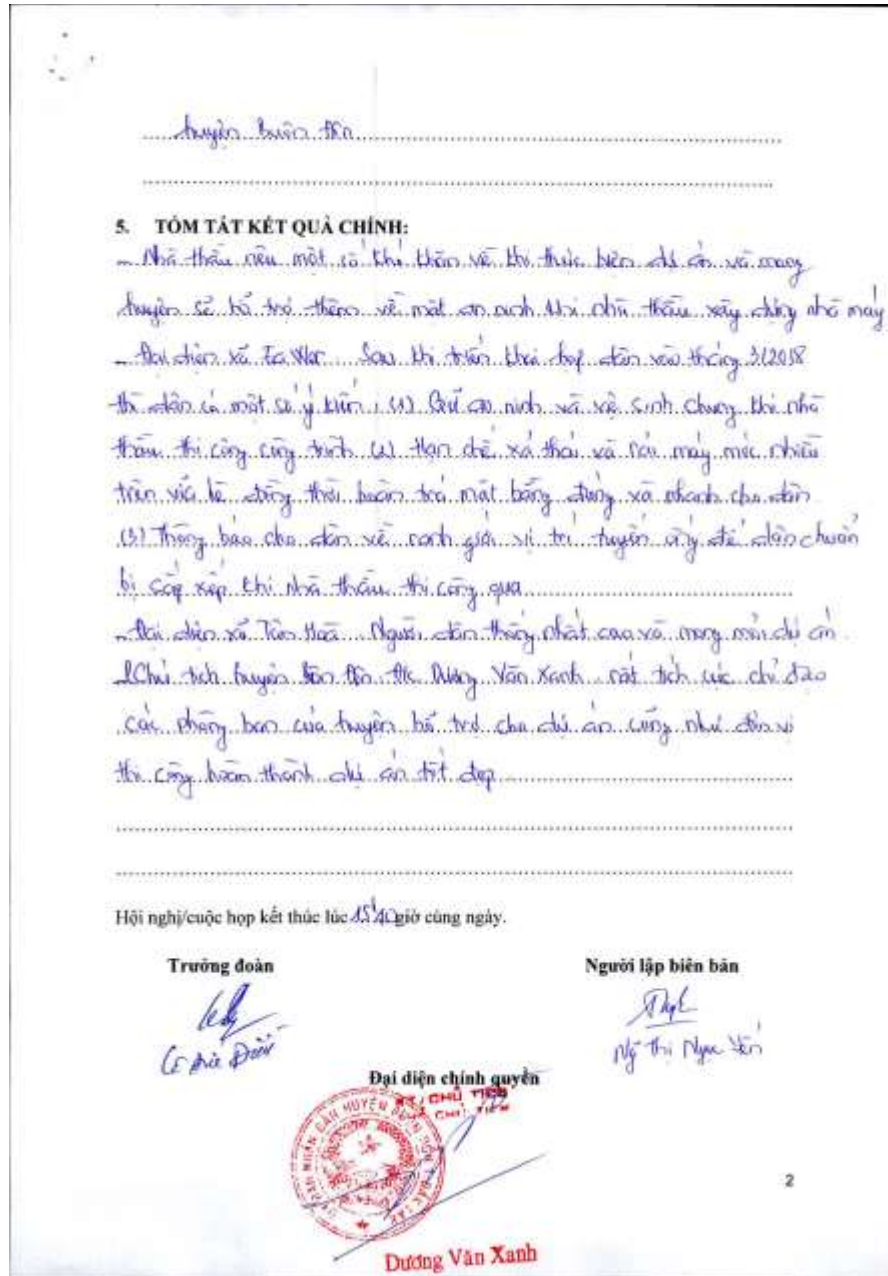 huyện Buôn Đôn
5. TÓM TẮT KẾT QUẢ CHÍNH:
- Nhà thầu nêu một số khó khăn về khi thực hiện dự án và mong
huyện sẽ hỗ trợ thêm về mặt an ninh khi nhà thầu xây dựng nhà máy
- Đại diện xã Ea Wer. Sau khi triển khai họp dân vào tháng 3/2018
thì dân có một số ý kiến: (1) Giữ an ninh và vệ sinh chung khi nhà
thầu thi công công trình (2) Hạn chế xả thải và rác máy móc nhiều
trên vỉa hè đồng thời hoàn trả mặt bằng đúng và nhanh cho dân
(3) Thông báo cho dân về ranh giới vị trí tuyến để dân chuẩn
bị sắp xếp khi nhà thầu thi công qua
- Đại diện xã Tân Hoà. Người dân thống nhất cao và mong mỏi dự án
Chủ tịch huyện Buôn Đôn Dương Văn Xanh rất tích cực chỉ đạo
các phòng ban của huyện hỗ trợ cho dự án cũng như đơn vị
thi công hoàn thành dự án tốt đẹp
Hội nghị/cuộc họp kết thúc lúc 15h40 giờ cùng ngày.
Trưởng đoàn
Người lập biên bản
Ngô Thị Ngọc Yến
Đại diện chính quyền
KT. CHỦ TỊCH
Dương Văn Xanh
2